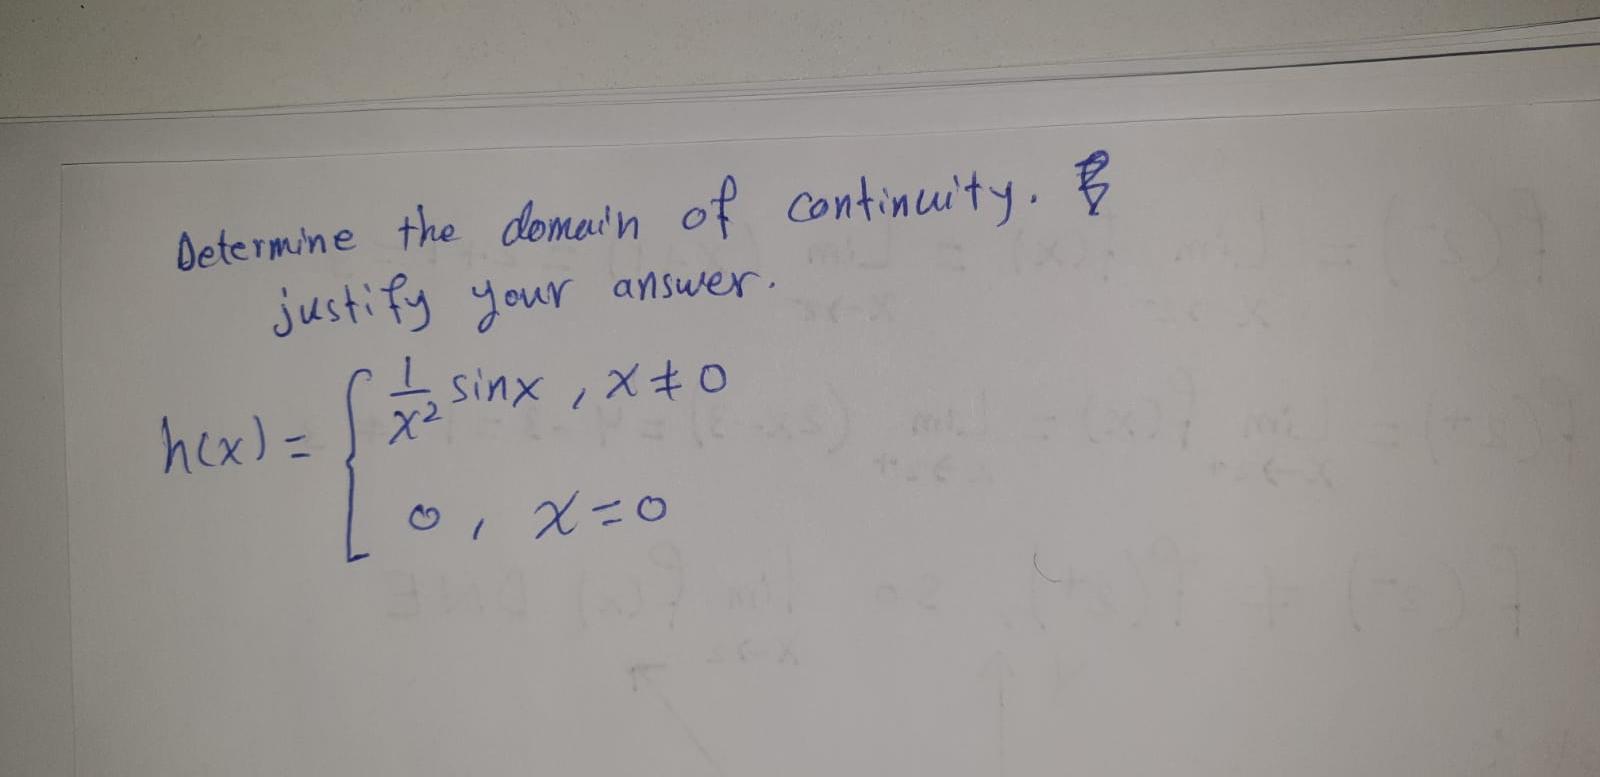 Determine the domain of continuity.
justify your answer.
h(x) = { 1/x² sinx , x ≠ 0
0 , x = 0